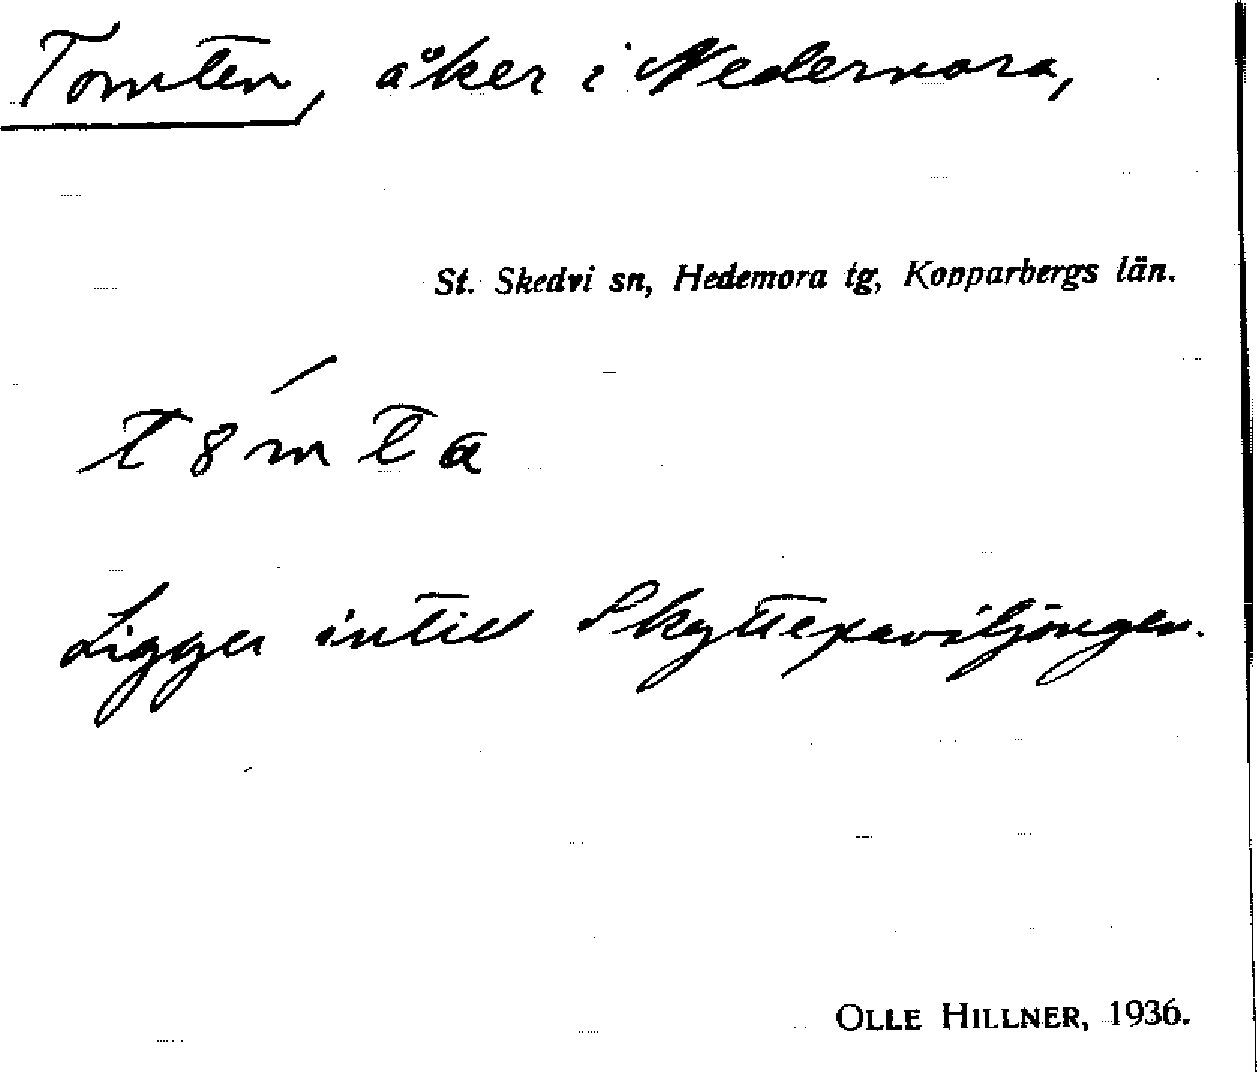 Tomten, åker i Nedernora,
St. Skedvi sn, Hedemora tg, Kopparbergs län.
Ligger intill Skyttepaviljongen.
OLLE HILLNER, 1936.